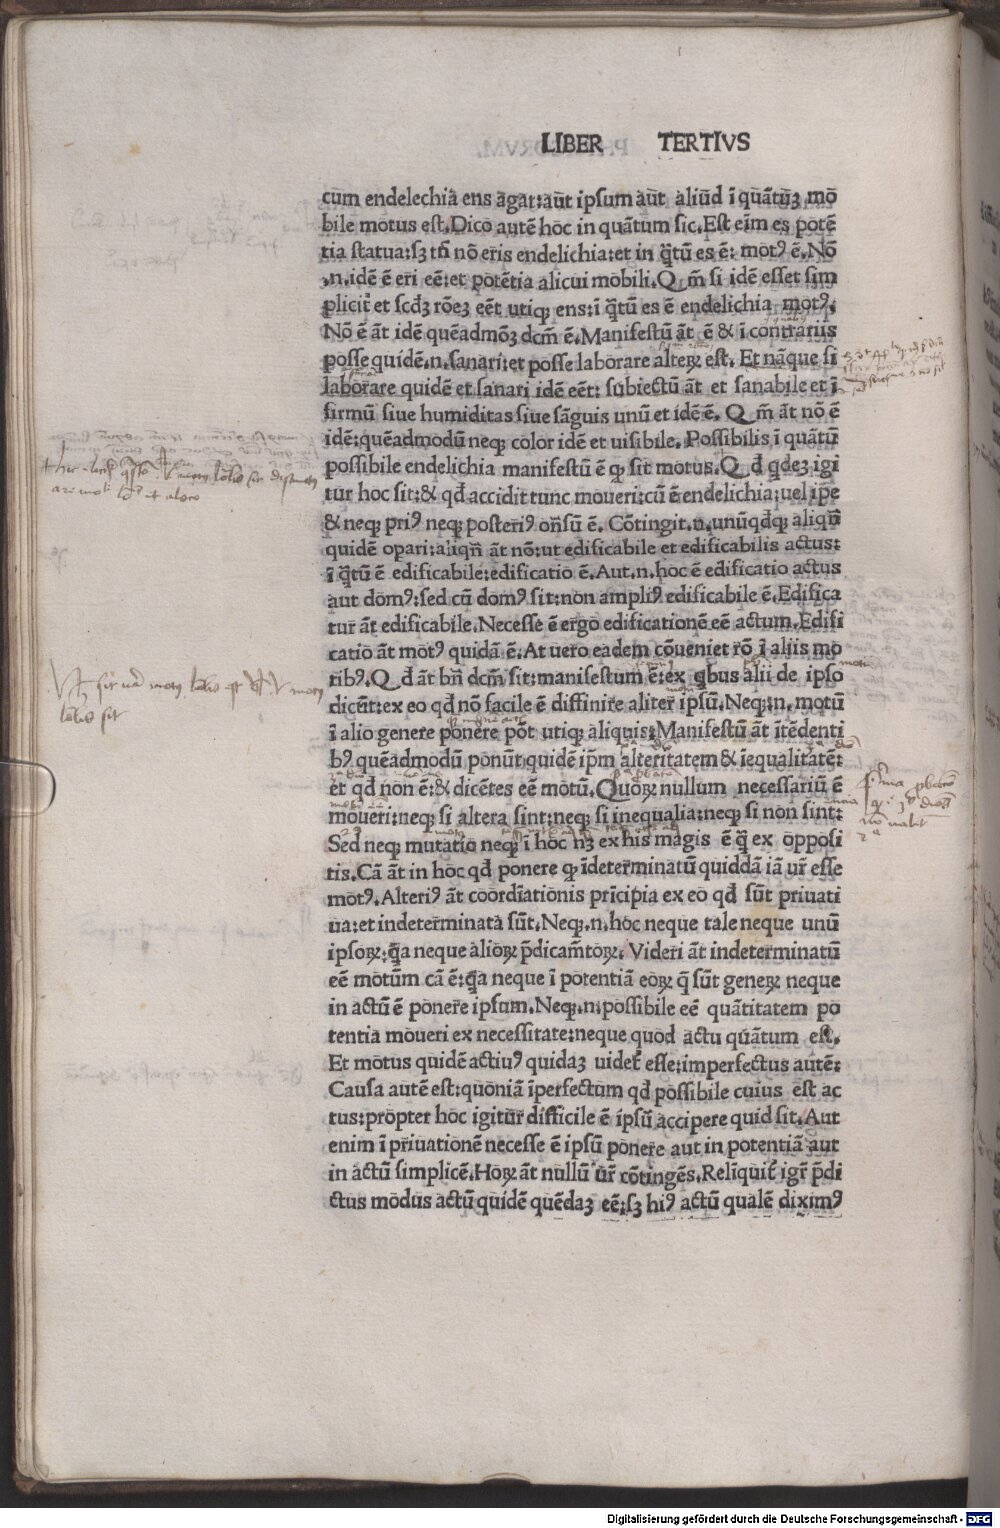 LIBER TERTIVS
cum̄ endelechiā ens agat: aut̄ ipsum aut̄ aliud̄ ī quātū̄ꝫ mo
bile motus est. Dico autē hoc in quātum sic. Est eīm es potē
tia statua: sꝫ tn̄ nō eris endelichia: et in q̄tū es ē: motꝰ ē. Nō
.n. idē ē eri eē: et potētia alicui mobili. Q m̄ si idē esset sim
pliciť et scd'ꝫ rōeꝫ eēt utiqꝫ ens: ī q̄tū es ē endelichia motꝰ.
Nō ē āt idē quēadmōꝫ dcm̄ ē. Manifestū āt ē & ī contrariis
posse quidē .n. sanari: et posse laborare alteꝝ est. Et nāque si
laborare quidē et sanari idē eēt: subiectū āt et sanabile et ī
firmū siue humiditas siue sāguis unū et idē ē. Q m̄ āt nō ē
idē: quēadmodū neqꝫ color idē et uisibile. Possibilis ī quātū
possibile endelichia manifestū ē qꝫ sit motus. Q d' q̇deꝫ igi
tur hoc sit: & qd' accidit tunc moueri: cū ē endelichia: uel ip̄e
& neqꝫ priꝰ neqꝫ posteriꝰ on̄sū ē. Cōtingit .n. unūqd'qꝫ aliqn̄
quidē opari: aliqn̄ āt nō: ut edificabile et edificabilis actus:
ī q̄tū ē edificabile: edificatio ē. Aut .n. hoc ē edificatio actus
aut domꝰ: sed cū domꝰ sit: non ampliꝰ edificabile ē. Edifica
tur āt edificabile. Necesse ē ergo edificationē eē actum. Edifi
catio āt motꝰ quidā ē. At uero eadem cōueniet rō ī aliis mo
tibꝰ. Q d' āt bn̄ dcm̄ sit: manifestum ē: ex qbus alii de ipso
dicūt: ex eo qd' nō facile ē diffinire aliter ipsū. Neqꝫ .n. motū
ī alio genere ponere pōt utiqꝫ aliquis: Manifestū āt ītēdenti
bꝰ quēadmodū ponūt quidē ip̄m alteritatem & īequalitatē:
et qd' non ē: & dicētes eē motū. Quoꝝ nullum necessariū ē
moueri: neqꝫ si altera sint: neqꝫ si inequalia: neqꝫ si non sint:
Sed neqꝫ mutatio neqꝫ ī hoc nꝫ ex his magis ē q̄ ex opposi
tis. Cā āt in hoc qd' ponere qꝫ īdeterminatū quiddā iā ur̄ esse
motꝰ. Alteriꝰ āt coordīationis prīcipia ex eo qd' sūt priuati
ua: et indeterminata sūt. Neqꝫ .n. hoc neque tale neque unū
ipsoꝝ: q̄a neque alioꝝ p̄dicam̄toꝝ. Videri āt indeterminatū
eē motūm cā ē: q̄a neque ī potentiā eoꝝ q̄ sūt geneꝝ neque
in actū ē ponere ipsum. Neqꝫ .n. possibile eē quātitatem po
tentiā moueri ex necessitate: neque quod actu quātum est.
Et motus quidē actiuꝰ quidaꝫ uideť esse: imperfectus autē:
Causa autē est: quoniā īperfectum qd' possibile cuius est ac
tus: propter hoc igitur̄ difficile ē ipsū accipere quid sit. Aut
enim ī priuationē necesse ē ipsū ponere aut in potentiā aut
in actū simplicē. Hoꝝ āt nullū ur̄ cōtingēs. Reliquiť igr̄ p̄di
ctus modus actū quidē quēdaꝫ eē: sꝫ hiꝰ actū qualē diximꝰ
Digitalisierung gefördert durch die Deutsche Forschungsgemeinschaft - DFG